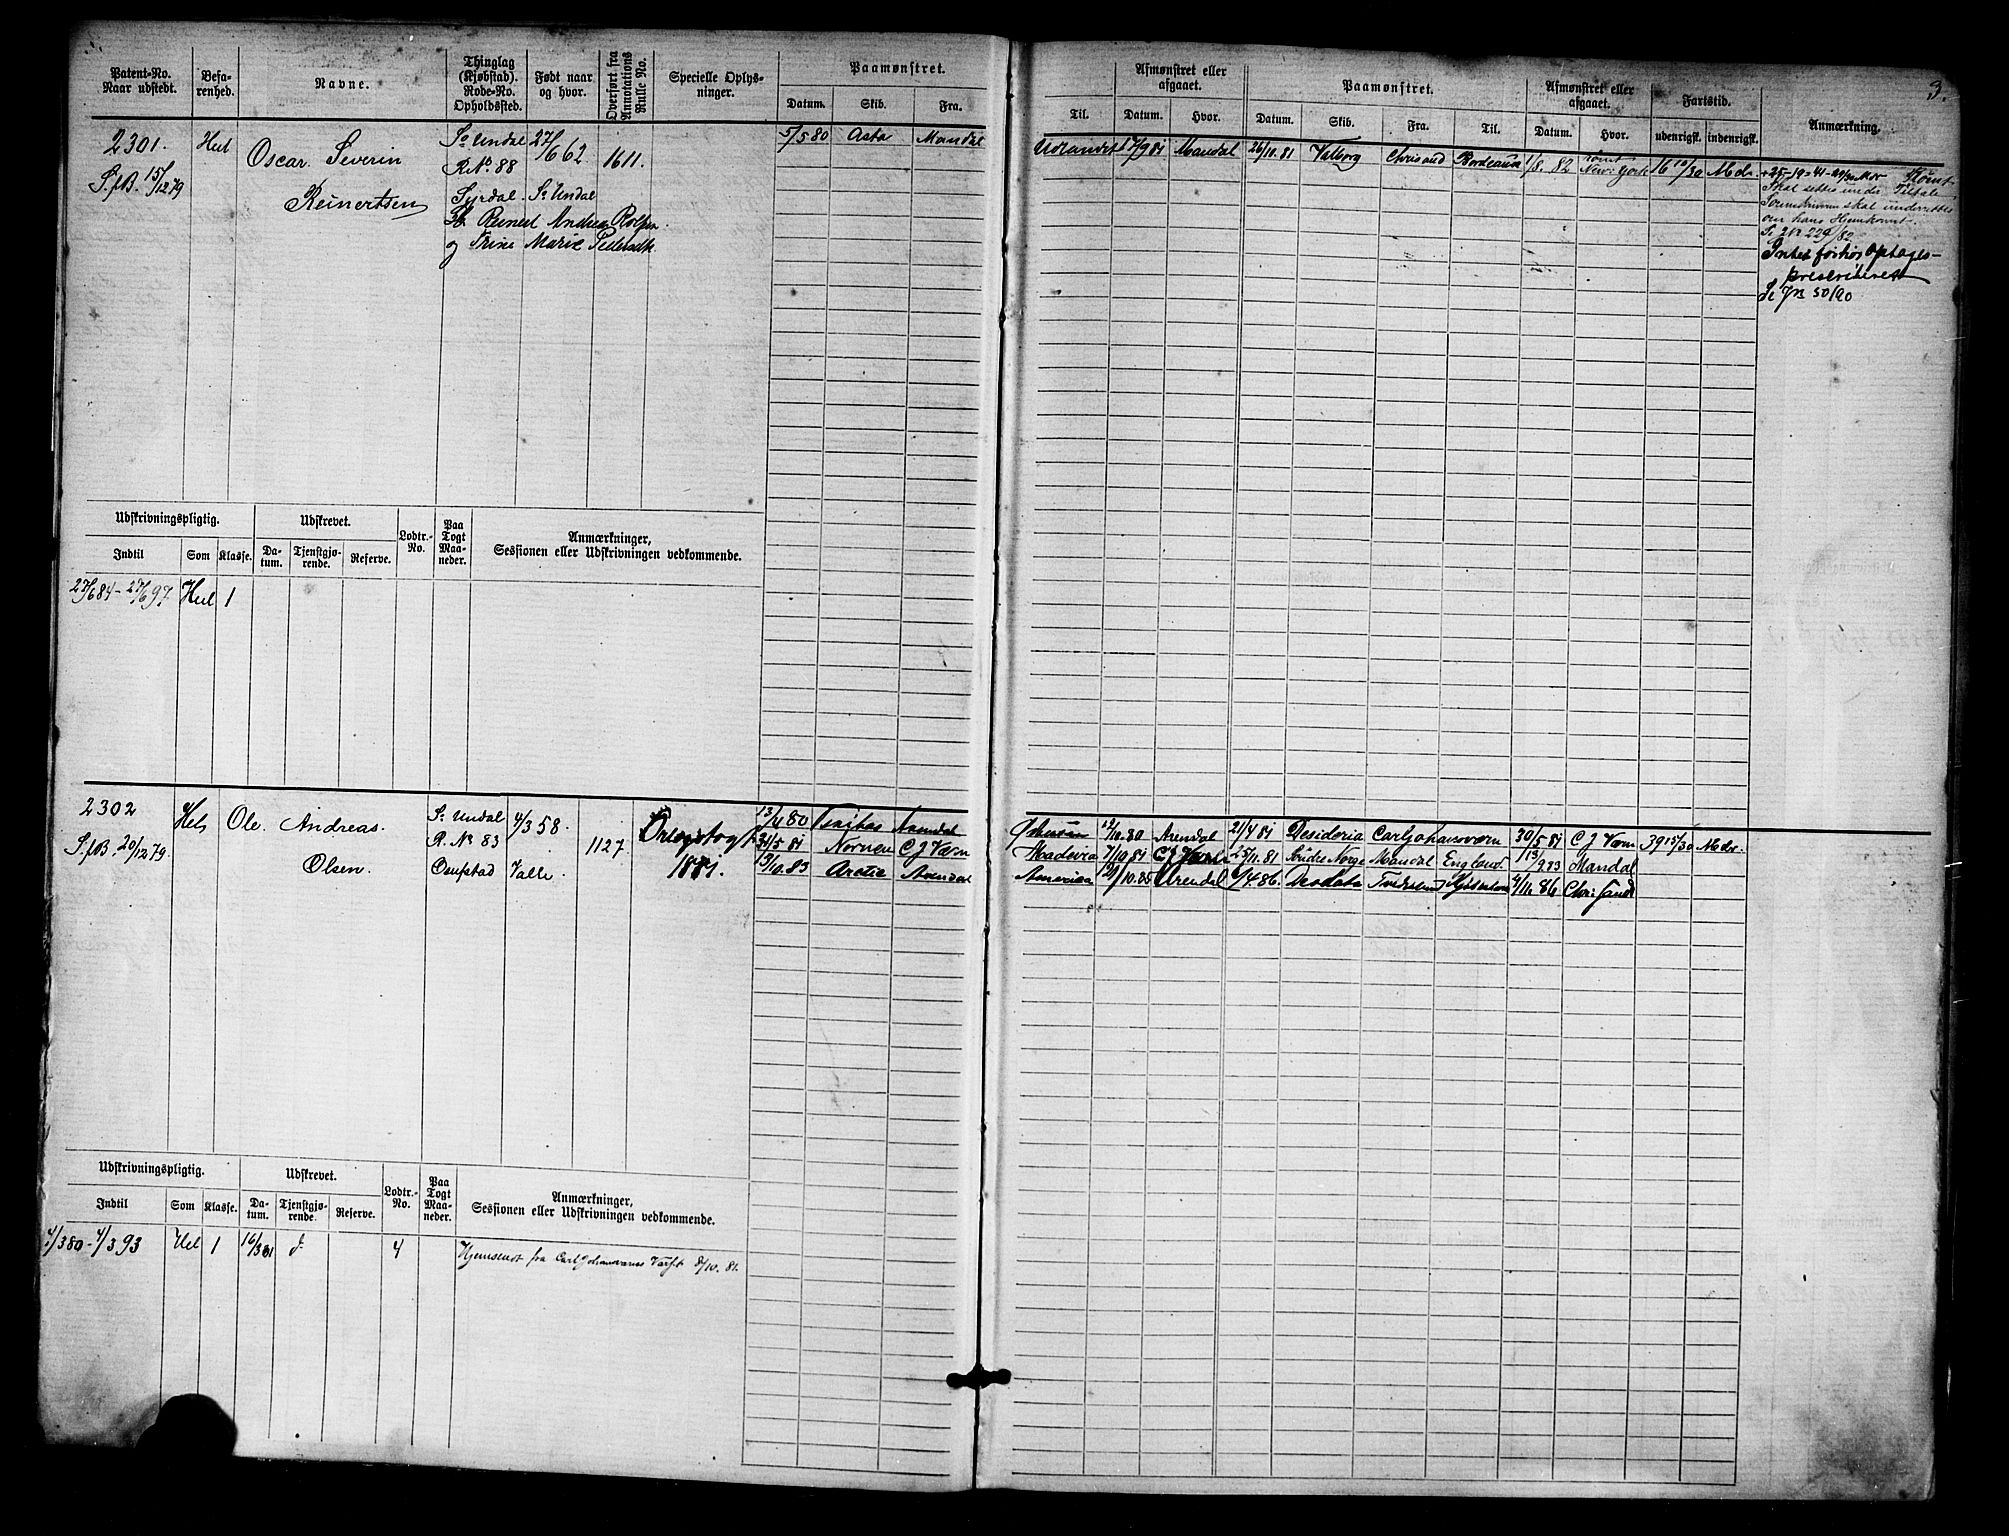 3.
Patent-No. Naar udstedt.
Befarenhed.
Navne.
Thinglag (Kjøbstad). Rode-No. Opholdssted.
Født naar og hvor.
Overført fra Annotations Rulle No.
Specielle Oplysninger.
Paamønstret.
Datum. Skib. Fra.
Til.
Afmønstret eller afgaaet.
Datum. Hvor.
Paamønstret.
Datum. Skib. Fra. Til.
Afmønstret eller afgaaet.
Datum. Hvor.
Fartstid.
udenrigsk. indenrigsk.
Anmærkning.
2301. Hel Oscar Severin So Undal 27/6 62 1611. 5/5 80 Asta Mandal
S.f.B. 15/12 79 Reinertsen R No 88
Syrdal. So Undal
og Trine Marie
Udlandet 17/9 81 Mandal 26/10 81 Valborg Chrisand Bordeaux 1/8. 82 rømt New York 16 10/30 Mdr.
Rømt
Skal settes under Tiltale
skal underrettes
om hans Hjemkomst.
Se 229/82
Intet forhør optages-
Se Jn 50/90
Udskrivningspligtig.
Udskrevet.
Lodtr.-No.
Paa Togt Maaneder.
Anmærkninger, Sessionen eller Udskrivningen vedkommende.
Indtil Som Klasse. Datum. Tjenstgjørende. Reserve.
27/6 84 - 27/6 97. Hel 1
2302 Hel Ole Andreas So Undal 4/3 58. 1127 Orlogstogt 13/4 80 Arendal
S.f.B. 20/12 79. Olsen. R. No 83 1881. 21/5 81 Nornen C J Værn
Valle. 13/10. 83 Arctic Arendal
12/10. 80 Arendal 21/4 81 Desideria Carljohansværn 30/5 81 C J Værn 39 15/30 Mdr.
Madeira 7/10 81 C J Værn 25/11. 81 Søndre Norge Mandal England 13/2 83 Mandal
America Arendal 6/4. 86. 4/11. 86 Chri.sand
Udskrivningspligtig.
Udskrevet.
Lodtr.-No.
Paa Togt Maaneder.
Anmærkninger, Sessionen eller Udskrivningen vedkommende.
Indtil Som Klasse. Datum. Tjenstgjørende. Reserve.
4/3 80 - 4/3 93 Hel 1 16/3 81 d. 4 Hjemsendt fra Carljohansværns Værft 8/10. 81.